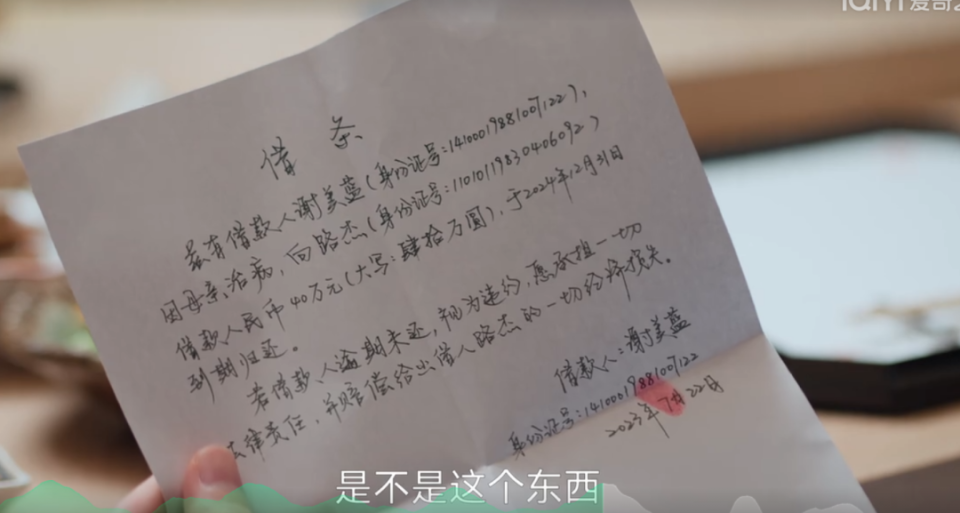 借条
兹有借款人谢美蓝(身份证号:14100019881007122),
因母亲治病,向路杰(身份证号:11010119830406092)
借款人民币40万元(大写:肆拾万圆),于2024年12月31日
到期归还。
若借款人逾期未还,视为违约,愿承担一切
法律责任,并赔偿给出借人路杰的一切经济损失。
借款人:谢美蓝
身份证号:14100019881007122
2023年7月22日
是不是这个东西